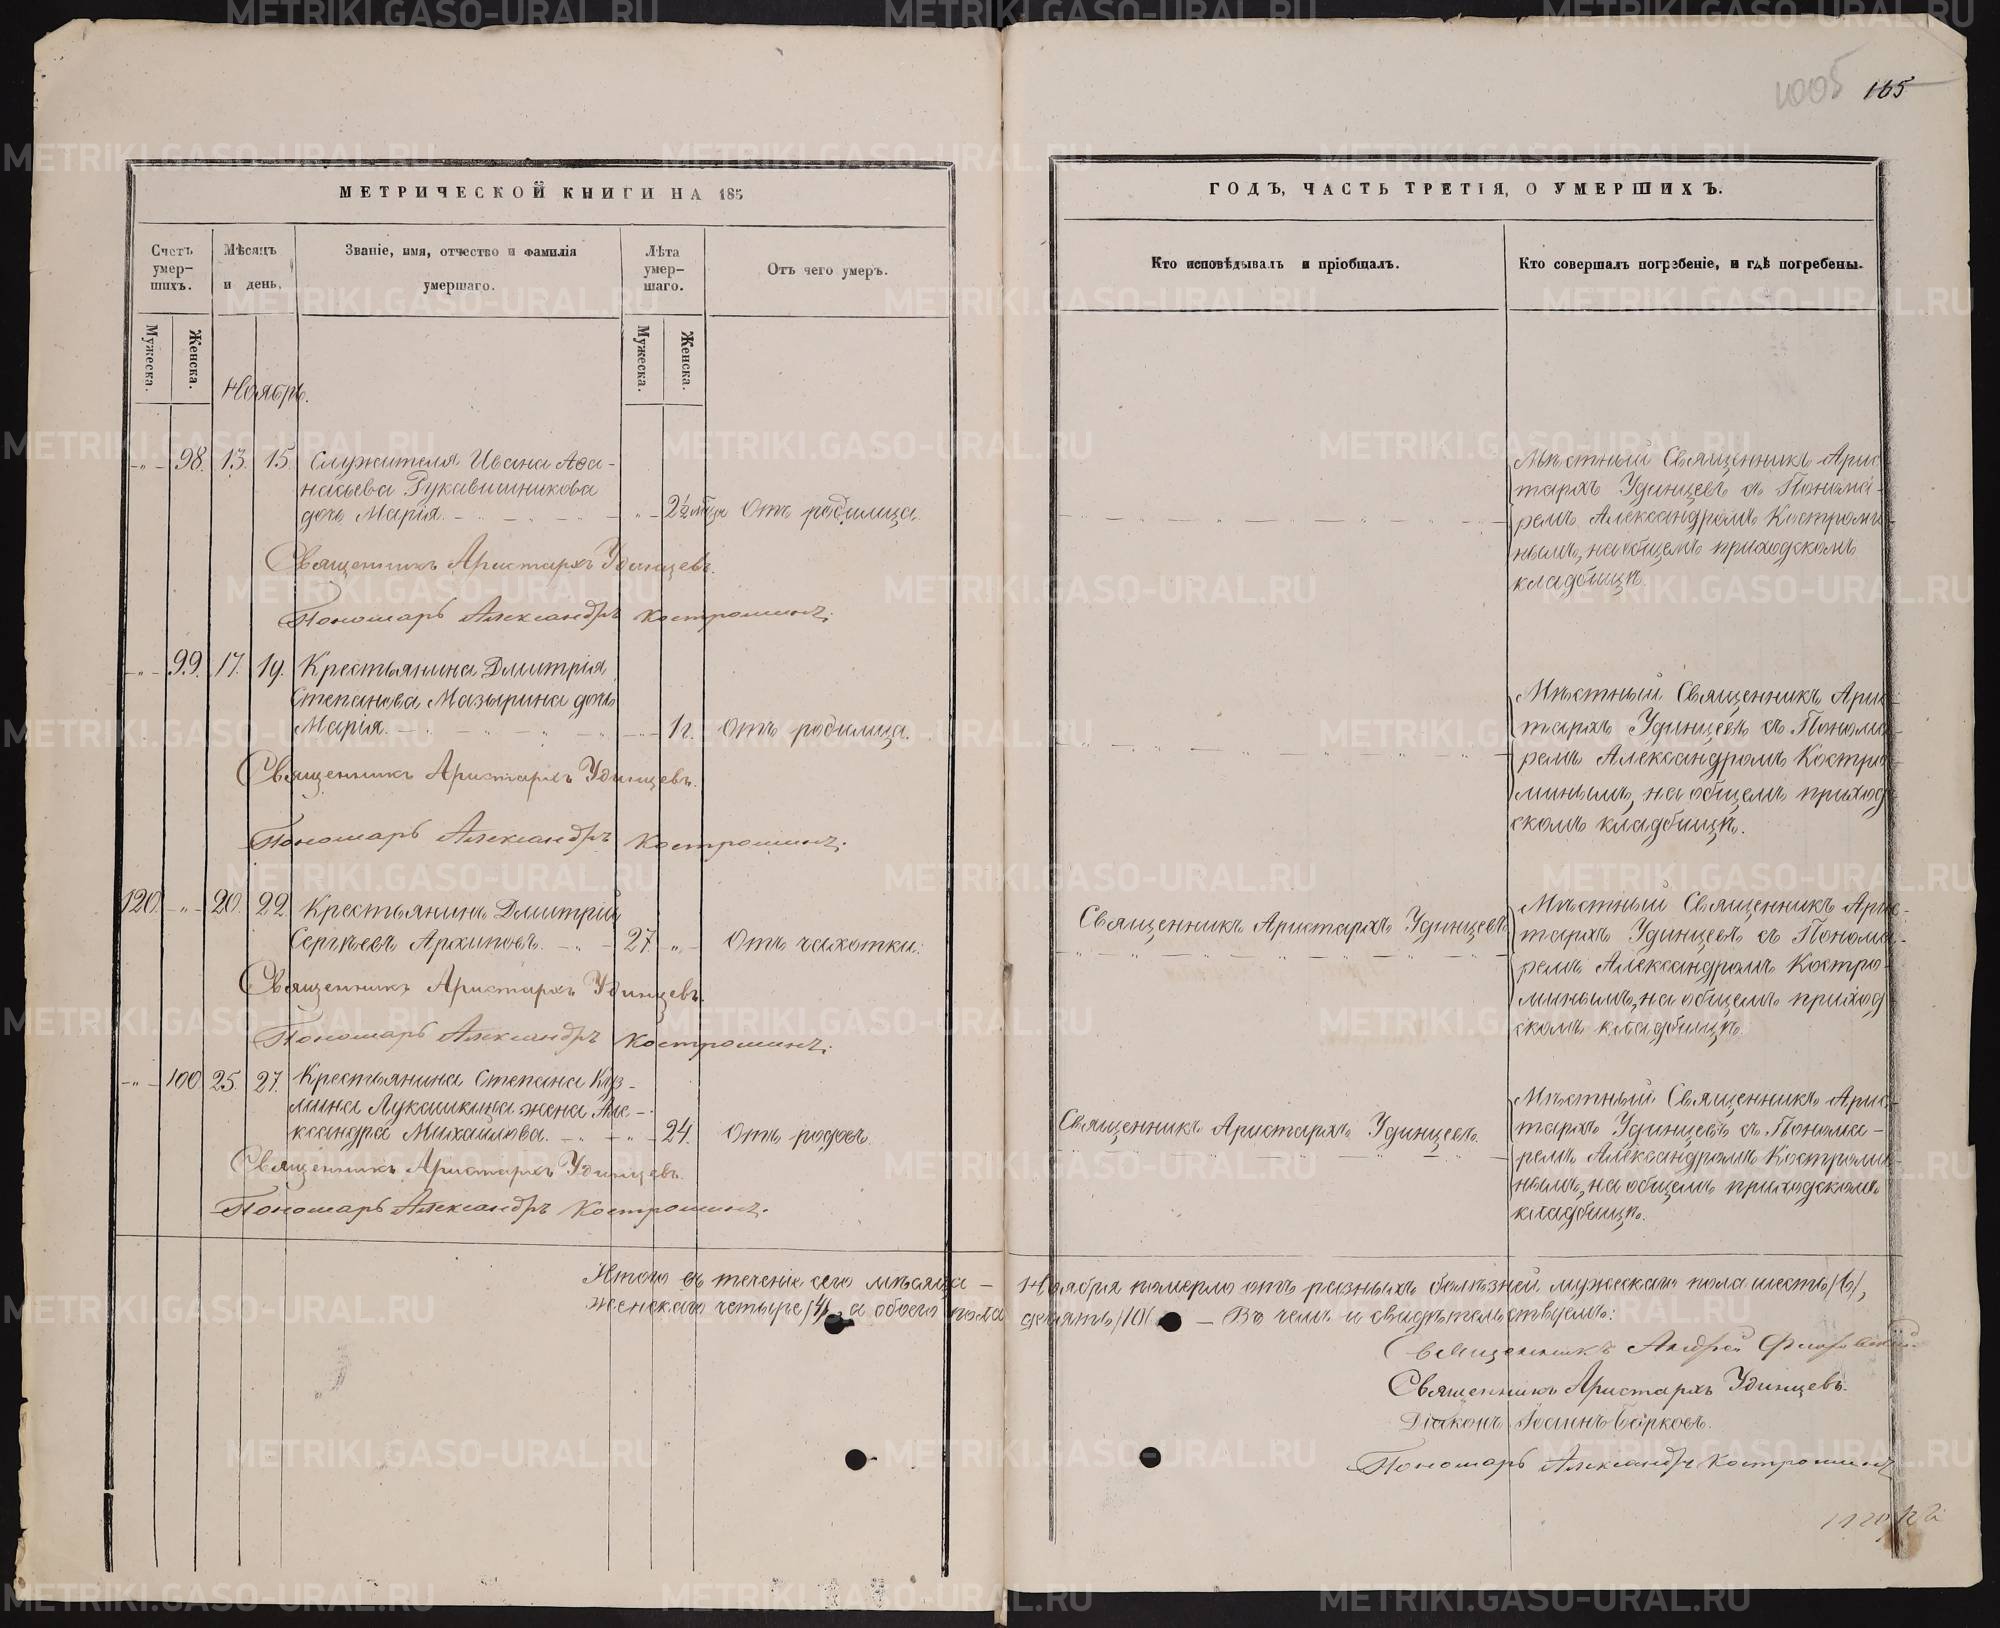 1005 165
МЕТРИЧЕСКОЙ КНИГИ НА 185
Счетъ умер-шихъ.
Мѣсяцъ и день.
Званіе, имя, отчество и фамилія умершаго.
Лѣта умер-шаго.
Отъ чего умеръ.
Мужеска.
Женска.
Мужеска.
Женска.
Ноябрь.
98. 13. 15. Служителя Ивана Аѳа-
насьева Рукавишникова
дочь Марія. 2½ мѣс. Отъ родимца.
Священникъ Аристархъ Удинцевъ.
Пономарь Александръ Костроминъ.
99. 17. 19. Крестьянина Дмитрія
Степанова Мазырина дочь
Марія. 1 г. Отъ родимца.
Священникъ Аристархъ Удинцевъ.
Пономарь Александръ Костроминъ.
120. 20. 22. Крестьянинъ Дмитрій
Сергѣевъ Архиповъ. 27. Отъ чахотки.
Священникъ Аристархъ Удинцевъ.
Пономарь Александръ Костроминъ.
100. 25. 27. Крестьянина Степана Куз-
мина Лукашкина жена Але-
ксандра Михайлова. 24. Отъ родовъ.
Священникъ Аристархъ Удинцевъ.
Пономарь Александръ Костроминъ.
ГОДЪ, ЧАСТЬ ТРЕТІЯ, О УМЕРШИХЪ.
Кто исповѣдывалъ и пріобщалъ.
Кто совершалъ погребеніе, и гдѣ погребены.
Мѣстный Священникъ Арис-
тархъ Удинцевъ съ Понома-
ремъ Александромъ Костроми-
нымъ, на общемъ приходскомъ
кладбищѣ.
Мѣстный Священникъ Арис-
тархъ Удинцевъ съ Понома-
ремъ Александромъ Костро-
минымъ, на общемъ приход-
скомъ кладбищѣ.
Священникъ Аристархъ Удинцевъ.
Мѣстный Священникъ Арис-
тархъ Удинцевъ съ Понома-
ремъ Александромъ Костро-
минымъ, на общемъ приход-
скомъ кладбищѣ.
Священникъ Аристархъ Удинцевъ.
Мѣстный Священникъ Арис-
тархъ Удинцевъ съ Понома-
ремъ Александромъ Костроми-
нымъ, на общемъ приходскомъ
кладбищѣ.
Итого въ теченіе сего мѣсяца – Ноября померло отъ разныхъ болѣзней мужескаго пола шесть /6/,
женскаго четыре /4/, а обоего пола десять /10/. – Въ чемъ и свидѣтельствуемъ:
Священникъ Андрей Флоровскій.
Священникъ Аристархъ Удинцевъ.
Діаконъ Іоаннъ Барковъ.
Пономарь Александръ Костроминъ
METRIKI.GASO-URAL.RU